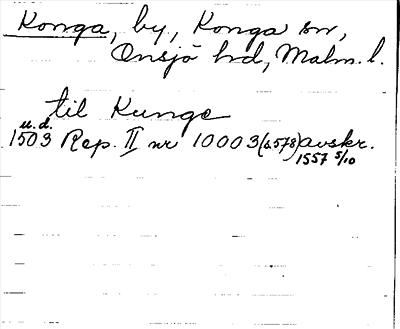 Konga, by, Konga sn,
Onsjö hd, Malm. l.
til Kunge
u.d.
1503 Rep. II nr 10003 (s. 578) avskr.
1557 5/10